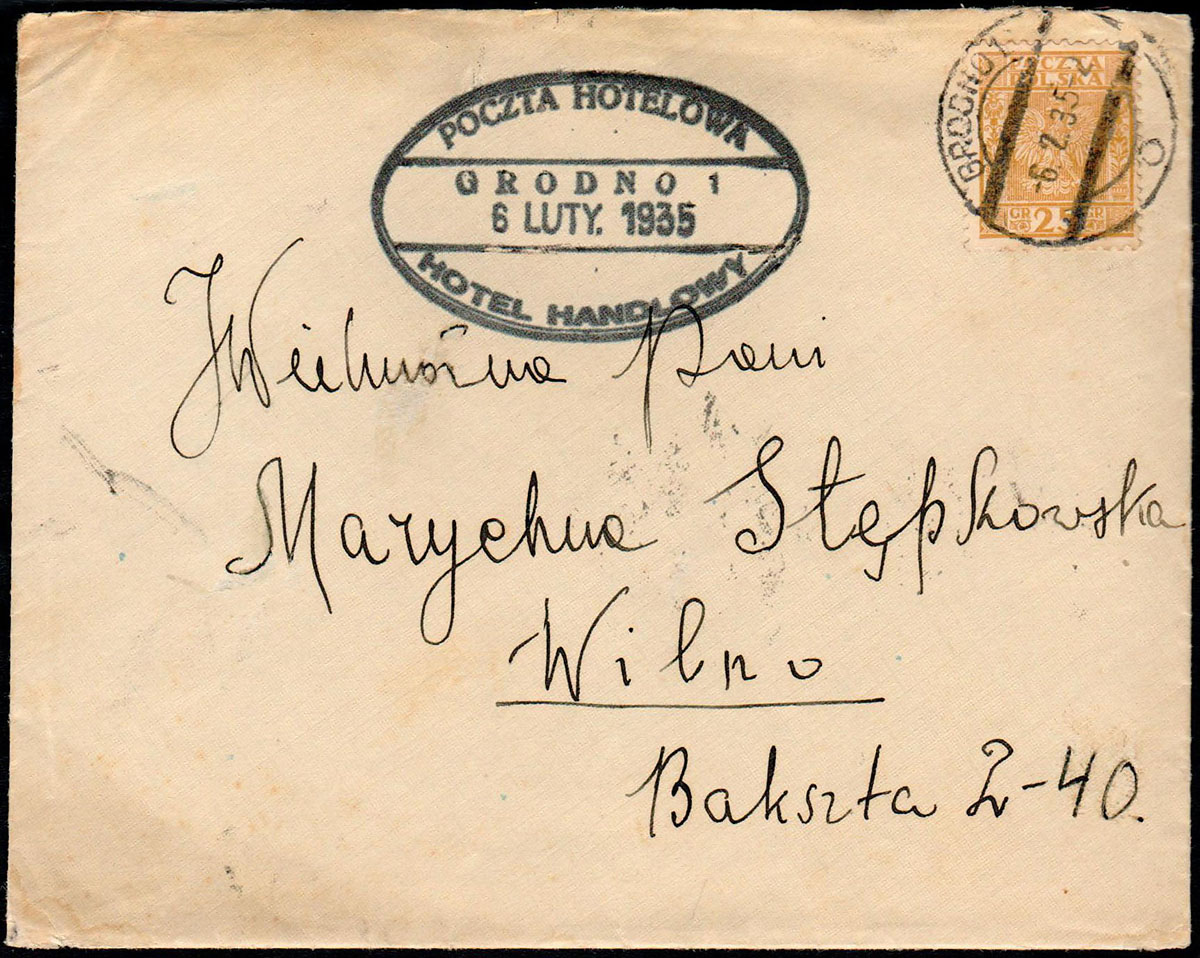 POCZTA HOTELOWA
GRODNO 1
6 LUTY. 1935
HOTEL HANDLOWY
GRODNO 1
-6. 2. 35-2
POCZTA
POLSKA
GR 25 GR
Wielmożna Pani
Marychna Stępkowska
Wilno
Bakszta 2-40.